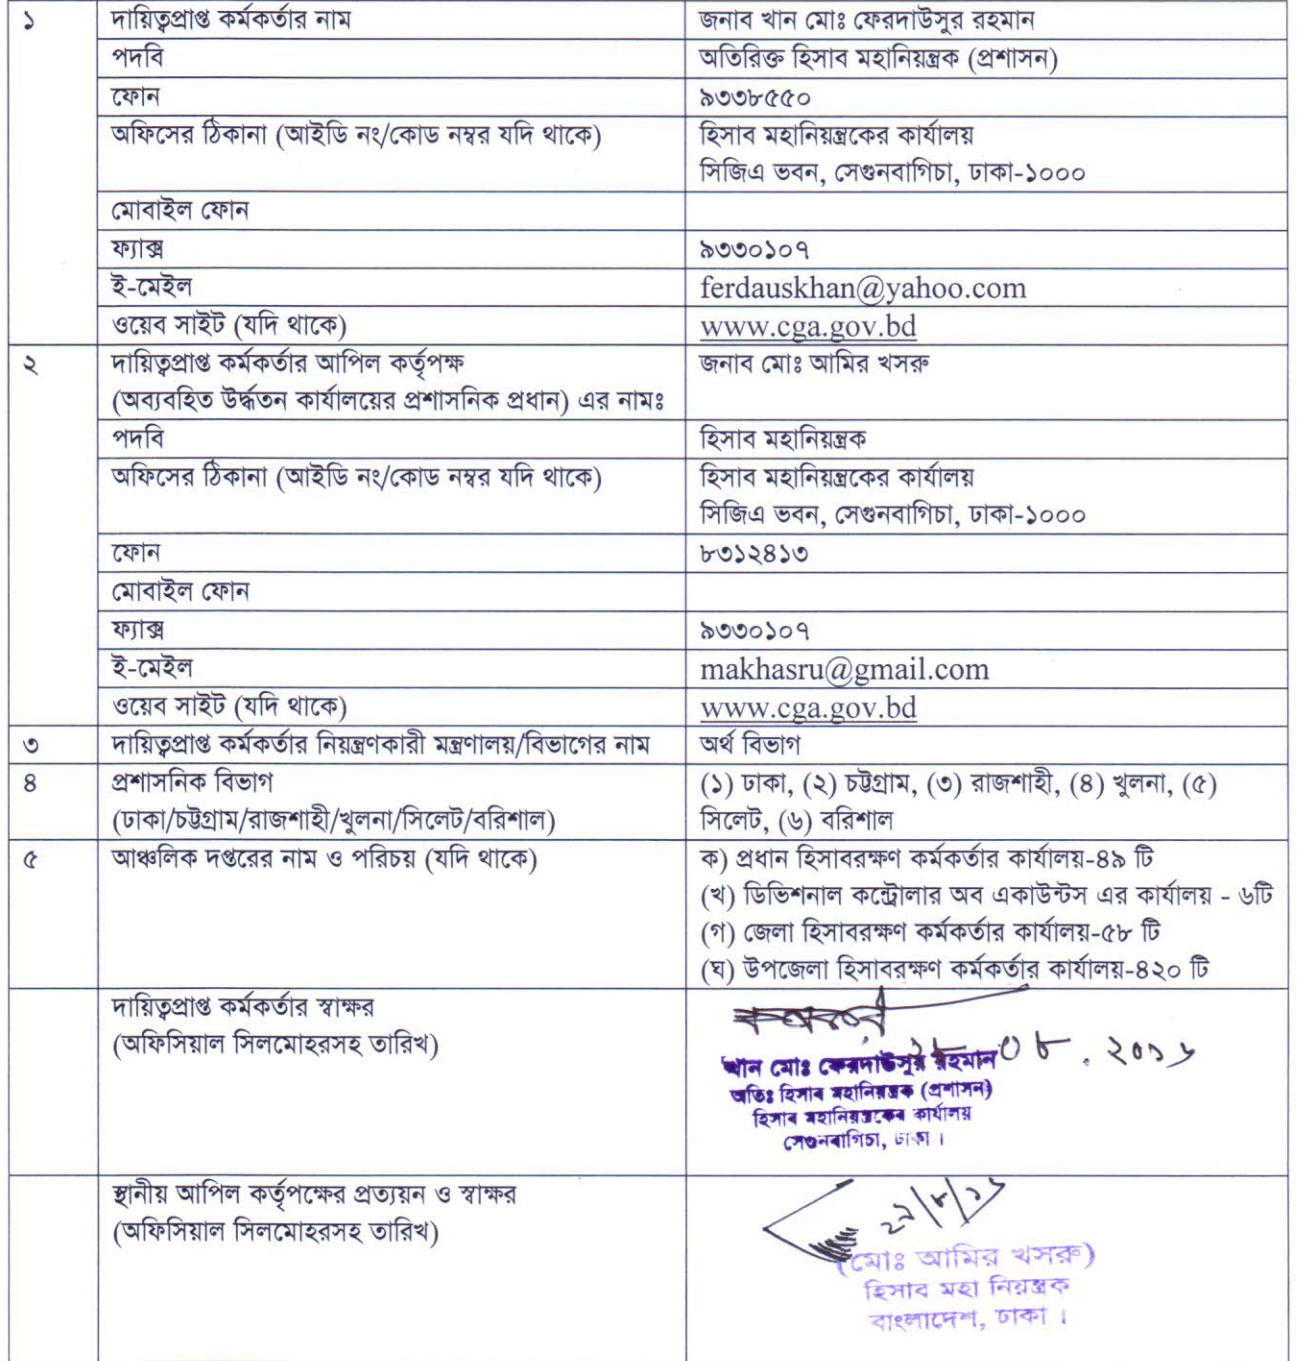 ১ দায়িত্বপ্রাপ্ত কর্মকর্তার নাম জনাব খান মোঃ ফেরদাউসুর রহমান
পদবি অতিরিক্ত হিসাব মহানিয়ন্ত্রক (প্রশাসন)
ফোন ৯৩৩৮৫৫০
অফিসের ঠিকানা (আইডি নং/কোড নম্বর যদি থাকে) হিসাব মহানিয়ন্ত্রকের কার্যালয়
সিজিএ ভবন, সেগুনবাগিচা, ঢাকা-১০০০
মোবাইল ফোন
ফ্যাক্স ৯৩৩০১০৭
ই-মেইল ferdauskhan@yahoo.com
ওয়েব সাইট (যদি থাকে) www.cga.gov.bd
২ দায়িত্বপ্রাপ্ত কর্মকর্তার আপিল কর্তৃপক্ষ জনাব মোঃ আমির খসরু
(অব্যবহিত উর্দ্ধতন কার্যালয়ের প্রশাসনিক প্রধান) এর নামঃ
পদবি হিসাব মহানিয়ন্ত্রক
অফিসের ঠিকানা (আইডি নং/কোড নম্বর যদি থাকে) হিসাব মহানিয়ন্ত্রকের কার্যালয়
সিজিএ ভবন, সেগুনবাগিচা, ঢাকা-১০০০
ফোন ৮৩১২৪১৩
মোবাইল ফোন
ফ্যাক্স ৯৩৩০১০৭
ই-মেইল makhasru@gmail.com
ওয়েব সাইট (যদি থাকে) www.cga.gov.bd
৩ দায়িত্বপ্রাপ্ত কর্মকর্তার নিয়ন্ত্রণকারী মন্ত্রণালয়/বিভাগের নাম অর্থ বিভাগ
৪ প্রশাসনিক বিভাগ (১) ঢাকা, (২) চট্টগ্রাম, (৩) রাজশাহী, (৪) খুলনা, (৫)
(ঢাকা/চট্টগ্রাম/রাজশাহী/খুলনা/সিলেট/বরিশাল) সিলেট, (৬) বরিশাল
৫ আঞ্চলিক দপ্তরের নাম ও পরিচয় (যদি থাকে) ক) প্রধান হিসাবরক্ষণ কর্মকর্তার কার্যালয়-৪৯ টি
(খ) ডিভিশনাল কন্ট্রোলার অব একাউন্টস এর কার্যালয় - ৬টি
(গ) জেলা হিসাবরক্ষণ কর্মকর্তার কার্যালয়-৫৮ টি
(ঘ) উপজেলা হিসাবরক্ষণ কর্মকর্তার কার্যালয়-৪২০ টি
দায়িত্বপ্রাপ্ত কর্মকর্তার স্বাক্ষর
(অফিসিয়াল সিলমোহরসহ তারিখ)
খান মোঃ ফেরদাউসুর রহমান
অতিঃ হিসাব মহানিয়ন্ত্রক (প্রশাসন)
হিসাব মহানিয়ন্ত্রকের কার্যালয়
সেগুনবাগিচা, ঢাকা।
স্থানীয় আপিল কর্তৃপক্ষের প্রত্যয়ন ও স্বাক্ষর
(অফিসিয়াল সিলমোহরসহ তারিখ)
(মোঃ আমির খসরু)
হিসাব মহা নিয়ন্ত্রক
বাংলাদেশ, ঢাকা।